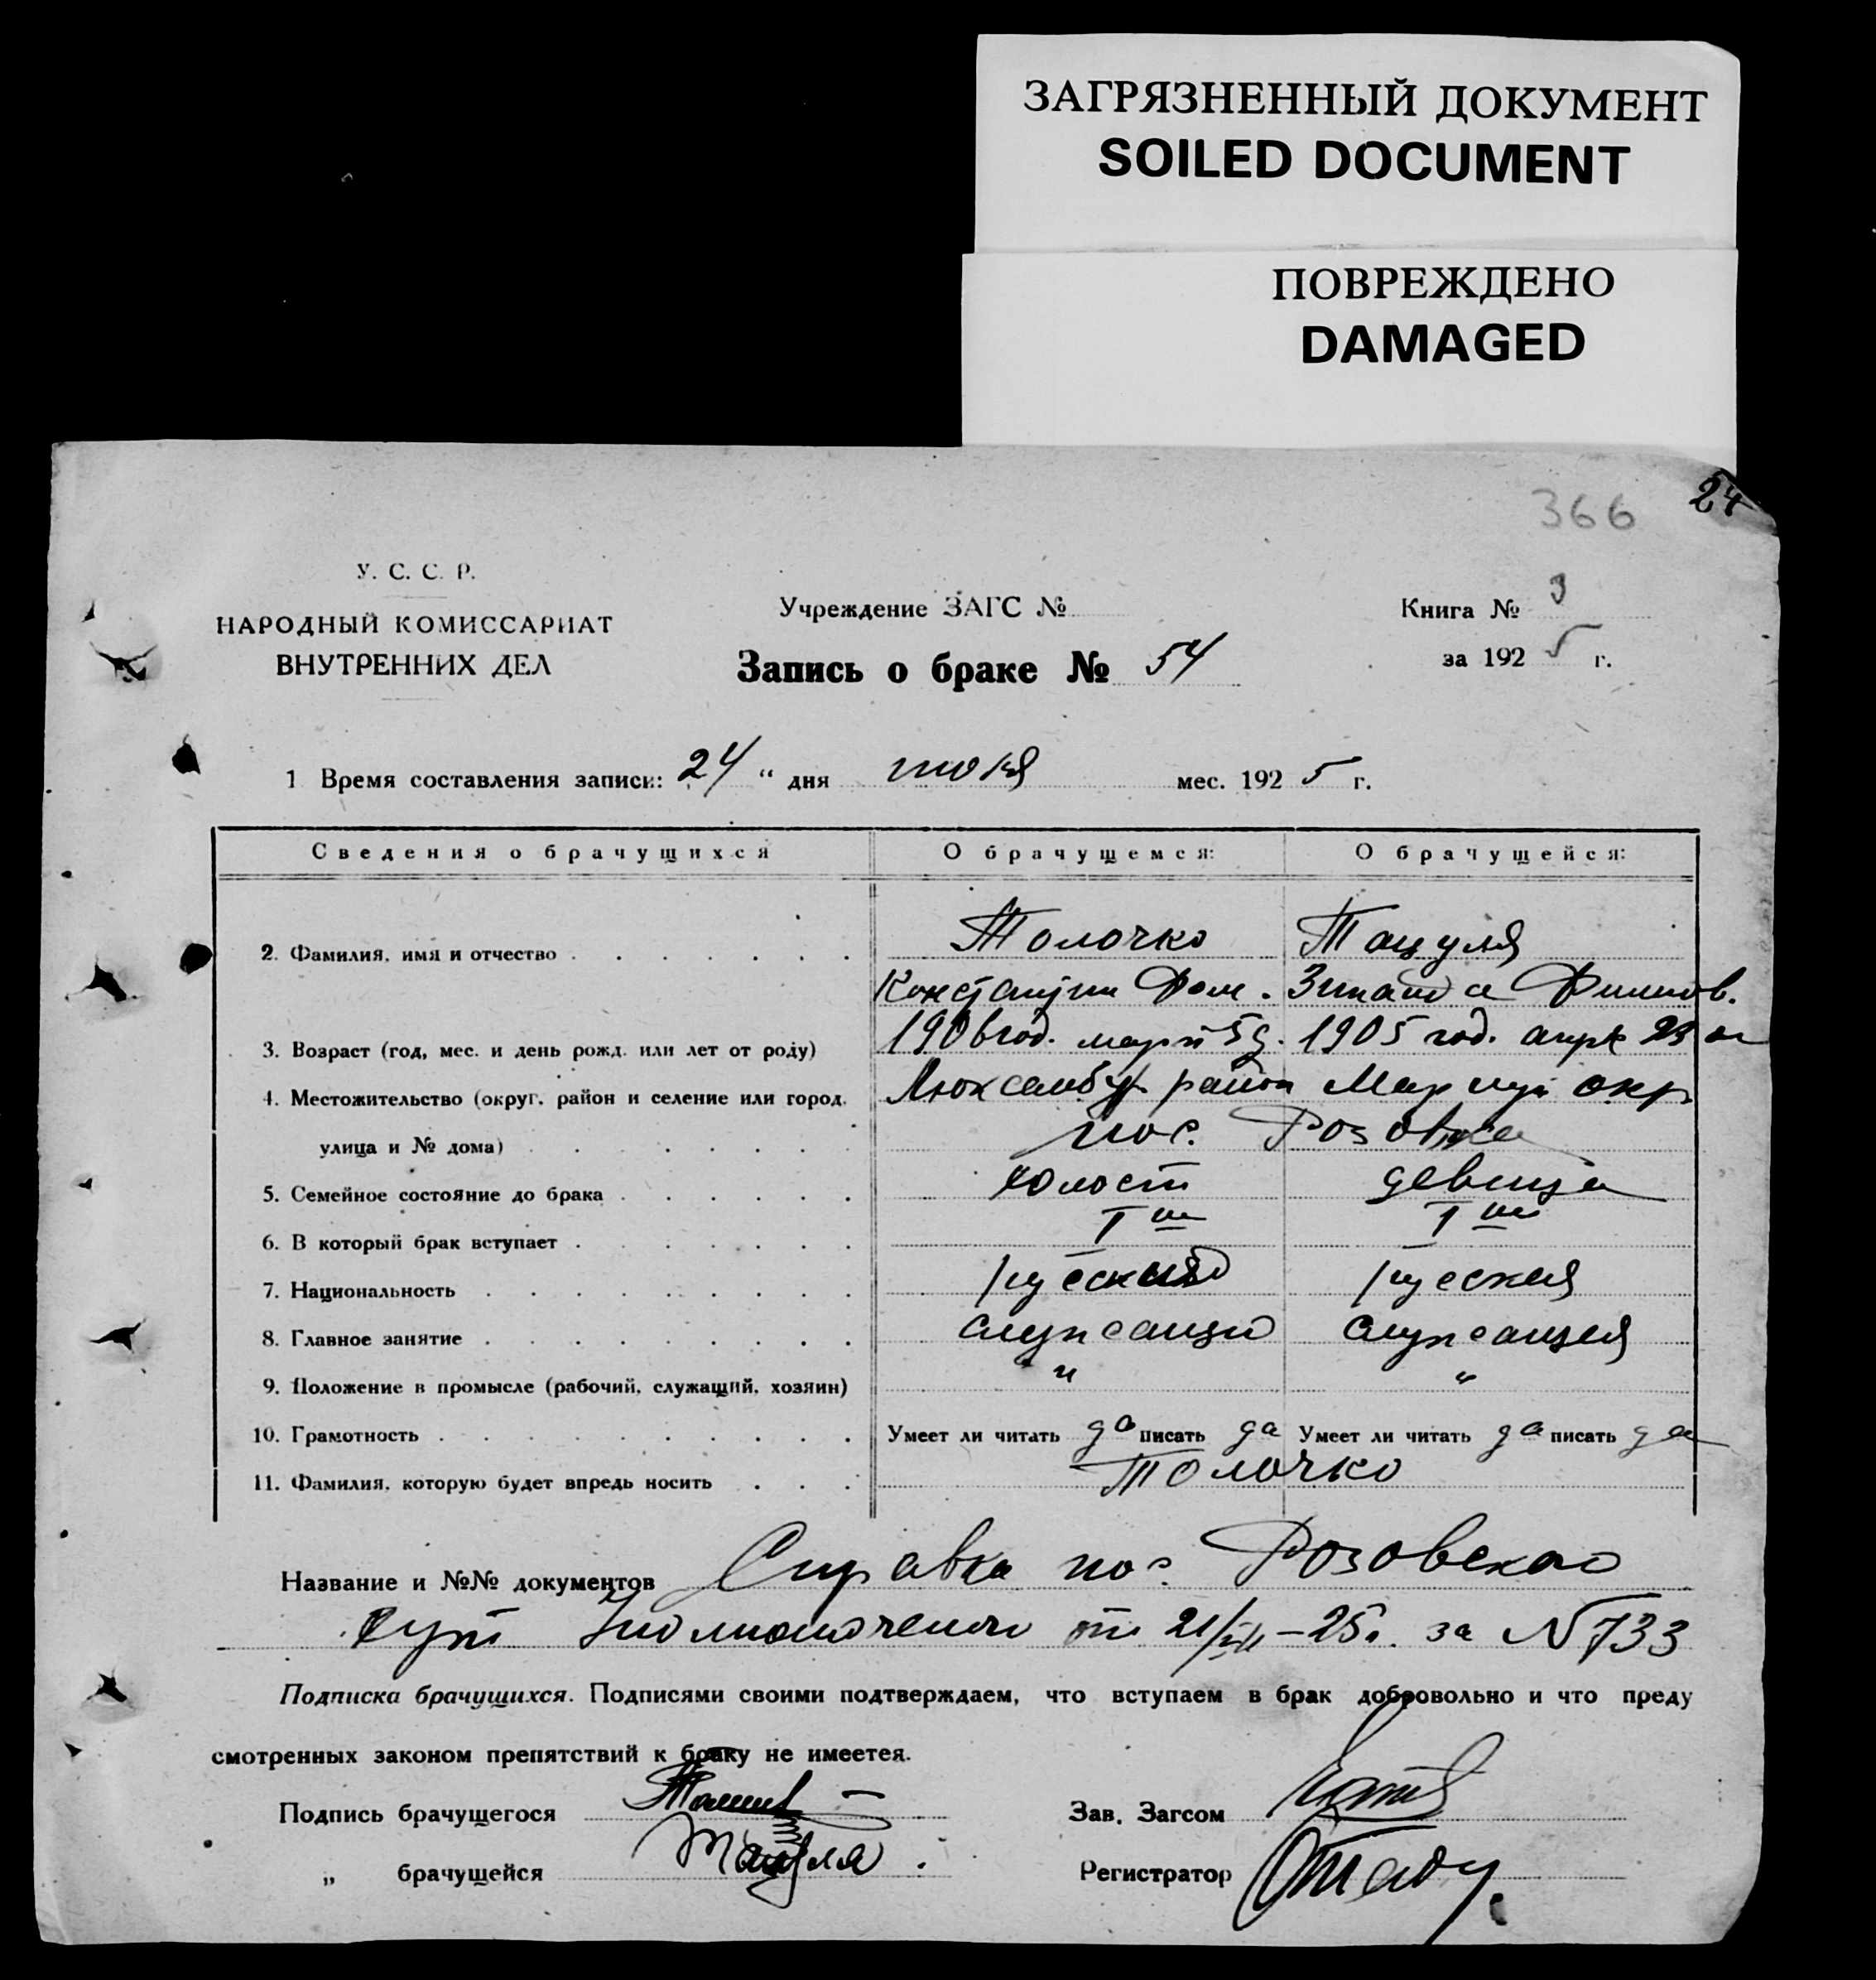 ЗАГРЯЗНЕННЫЙ ДОКУМЕНТ
SOILED DOCUMENT
ПОВРЕЖДЕНО
DAMAGED
366 24
У. С. С. Р.
НАРОДНЫЙ КОМИССАРИАТ
ВНУТРЕННИХ ДЕЛ
Учреждение ЗАГС №
Запись о браке № 54
Книга № 3
за 1925 г.
1 Время составления записи: 24 “ дня июля мес. 1925 г.
Сведения о брачущихся О брачущемся: О брачущейся:
2. Фамилия, имя и отчество Толочко Тацуля
Константин Фом. Зинаида Филипов.
3. Возраст (год, мес. и день рожд. или лет от роду) 1906 год. март 5 д. 1905 год. апре 23
4. Местожительство (округ, район и селение или город, Люксембур район Мариуп окр
улица и № дома) пос. Розовка
5. Семейное состояние до брака холост девица
6. В который брак вступает I ый I ый
7. Национальность русский русская
8. Главное занятие служащий служащая
9. Положение в промысле (рабочий, служащий, хозяин) " "
10. Грамотность Умеет ли читать да писать да Умеет ли читать да писать да
11. Фамилия, которую будет впредь носить Толочко
Название и №№ документов Справка пос. Розовского
от 21/VII–25г. за № 733
Подписка брачущихся. Подписями своими подтверждаем, что вступаем в брак добровольно и что преду
смотренных законом препятствий к браку не имеетея.
Подпись брачущегося
Зав. Загсом
„ брачущейся Тацуля
Регистратор